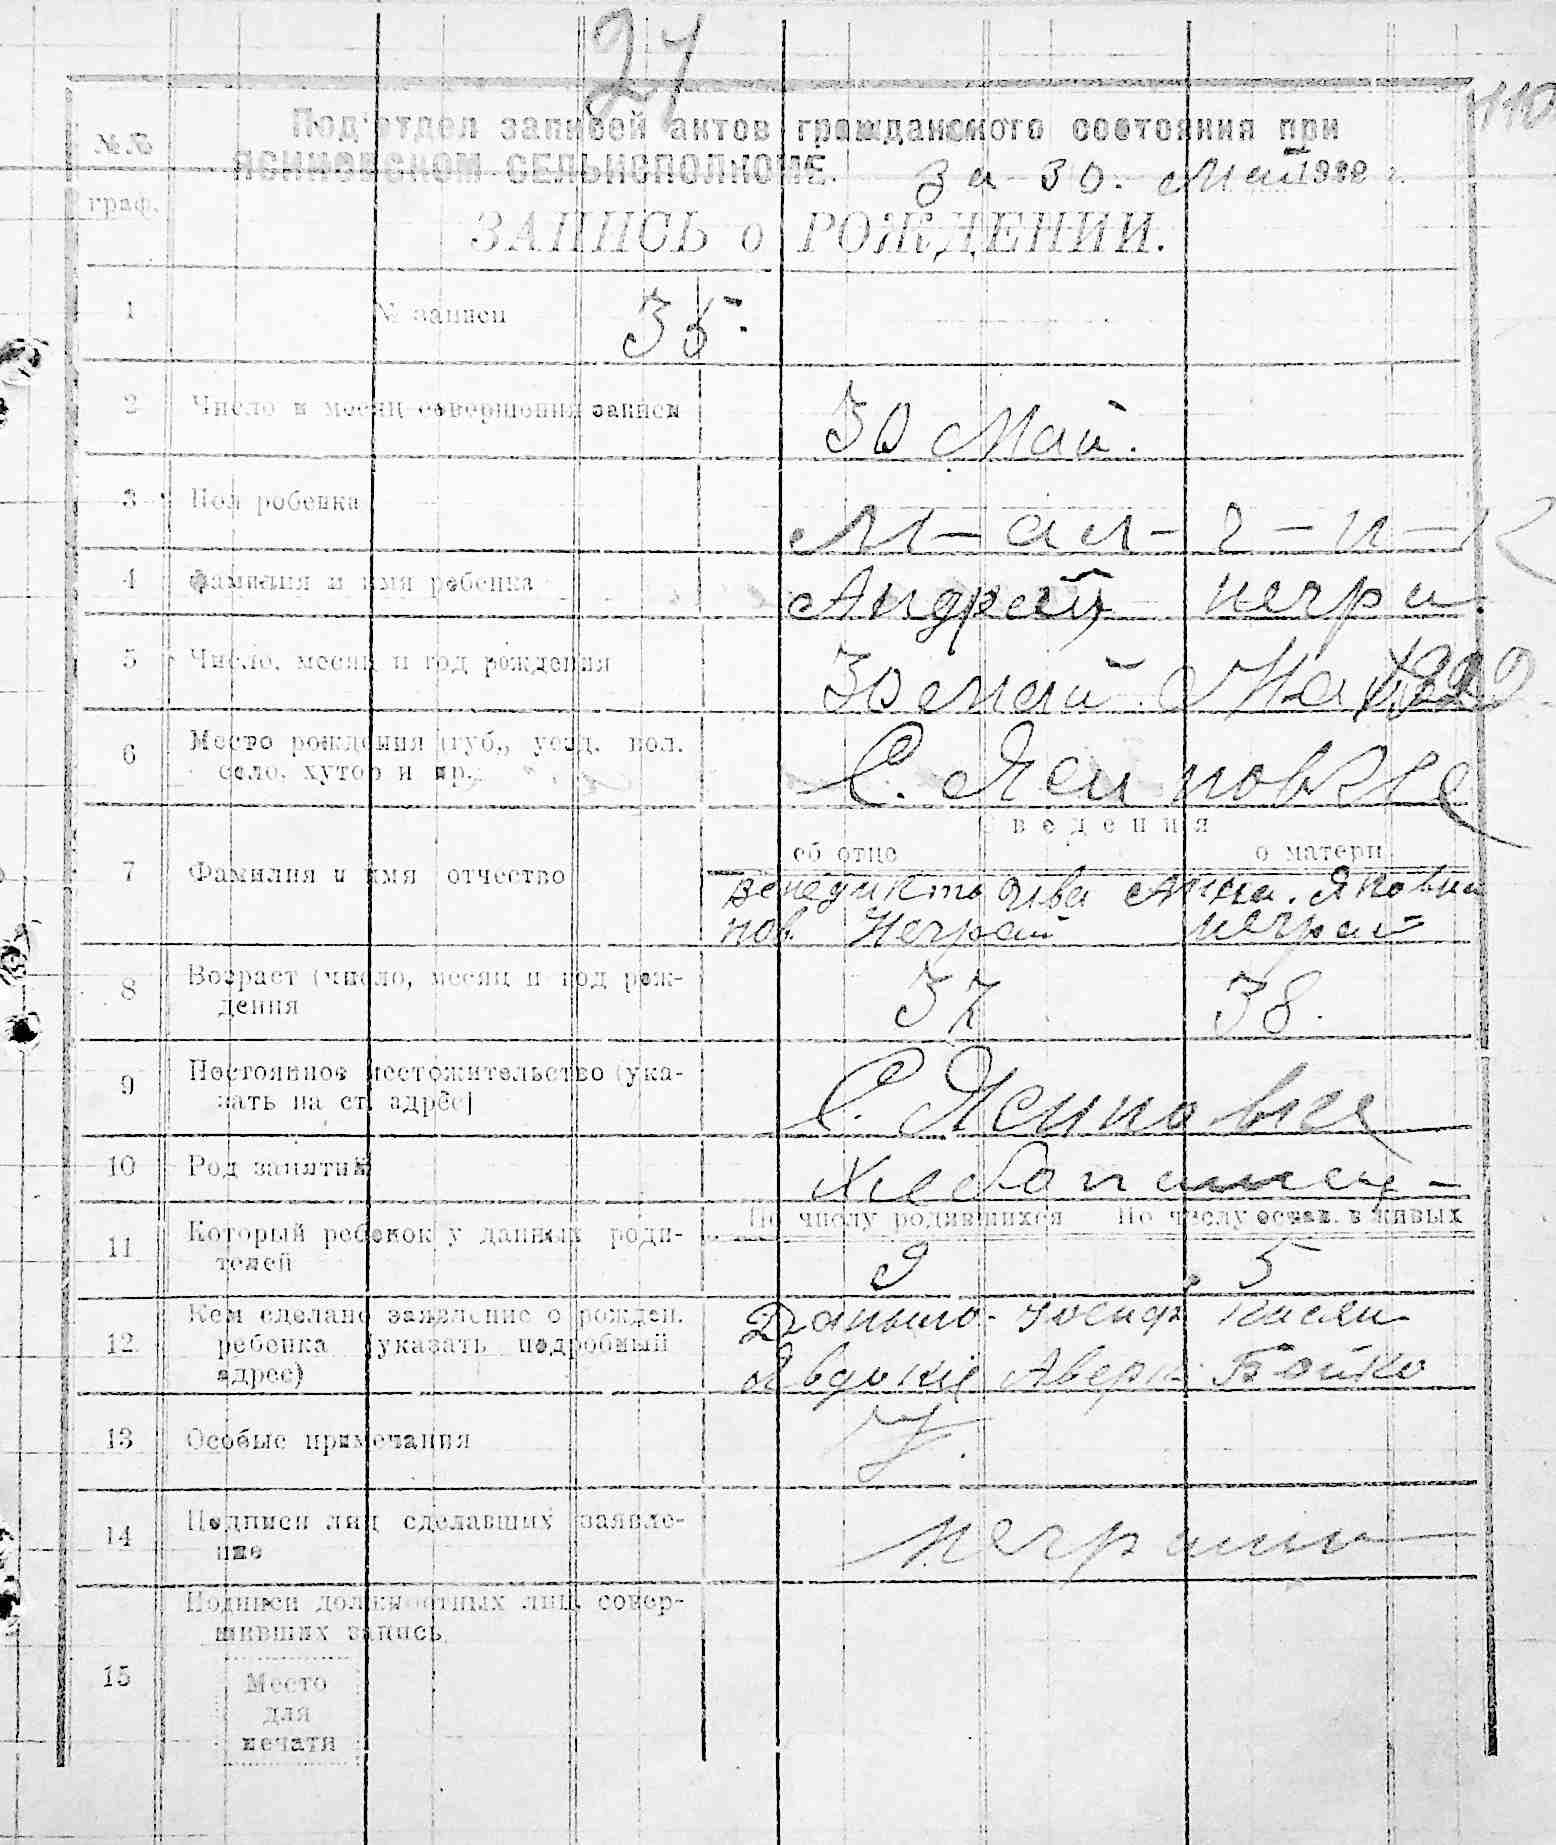 21
110
№№
граф.
Под'отдел записей актов гражданского состояния при
ЯСИНОВСКОМ СЕЛЬИСПОЛКОМЕ.
За 30. Май 1922 г.
ЗАПИСЬ о РОЖДЕНИИ.
1 № записи 35.
2 Число и месяц совершения записи 30 Май.
3 Пол робенка М-ал-ч-и-к
4 Фамилия и имя ребенка Андрей Нечри
5 Число, месяц и год рождения 30 май 1922
6 Место рождения (губ., уезд. вол. село. хутор и пр. С. Ясиновке
Сведения
об отце о матери
7 Фамилия и имя отчество Венедикто Ива Анна. Яковна
нов Нечрай Нечрай
8 Возраст (число, месяц и год рож-
дения 37 38.
9 Постоянное местожительство (ука-
зать на ст. адрес) С. Ясиновке
10 Род занятий Хлебопашец -
По числу родившихся По числу остав. в живых
11 Который ребенок у данных роди-
телей 9 5
12 Кем сделано заявление о рожден.
ребенка (указать подробный
адрес)
Даныло Иосиф Касян
Явдокие Аверк Бойко
13 Особые примечания
14 Подписи лиц сделавших заявле-
ние
15 Подписи должностных лиц, совер-
шивших запись
Место
для
печати